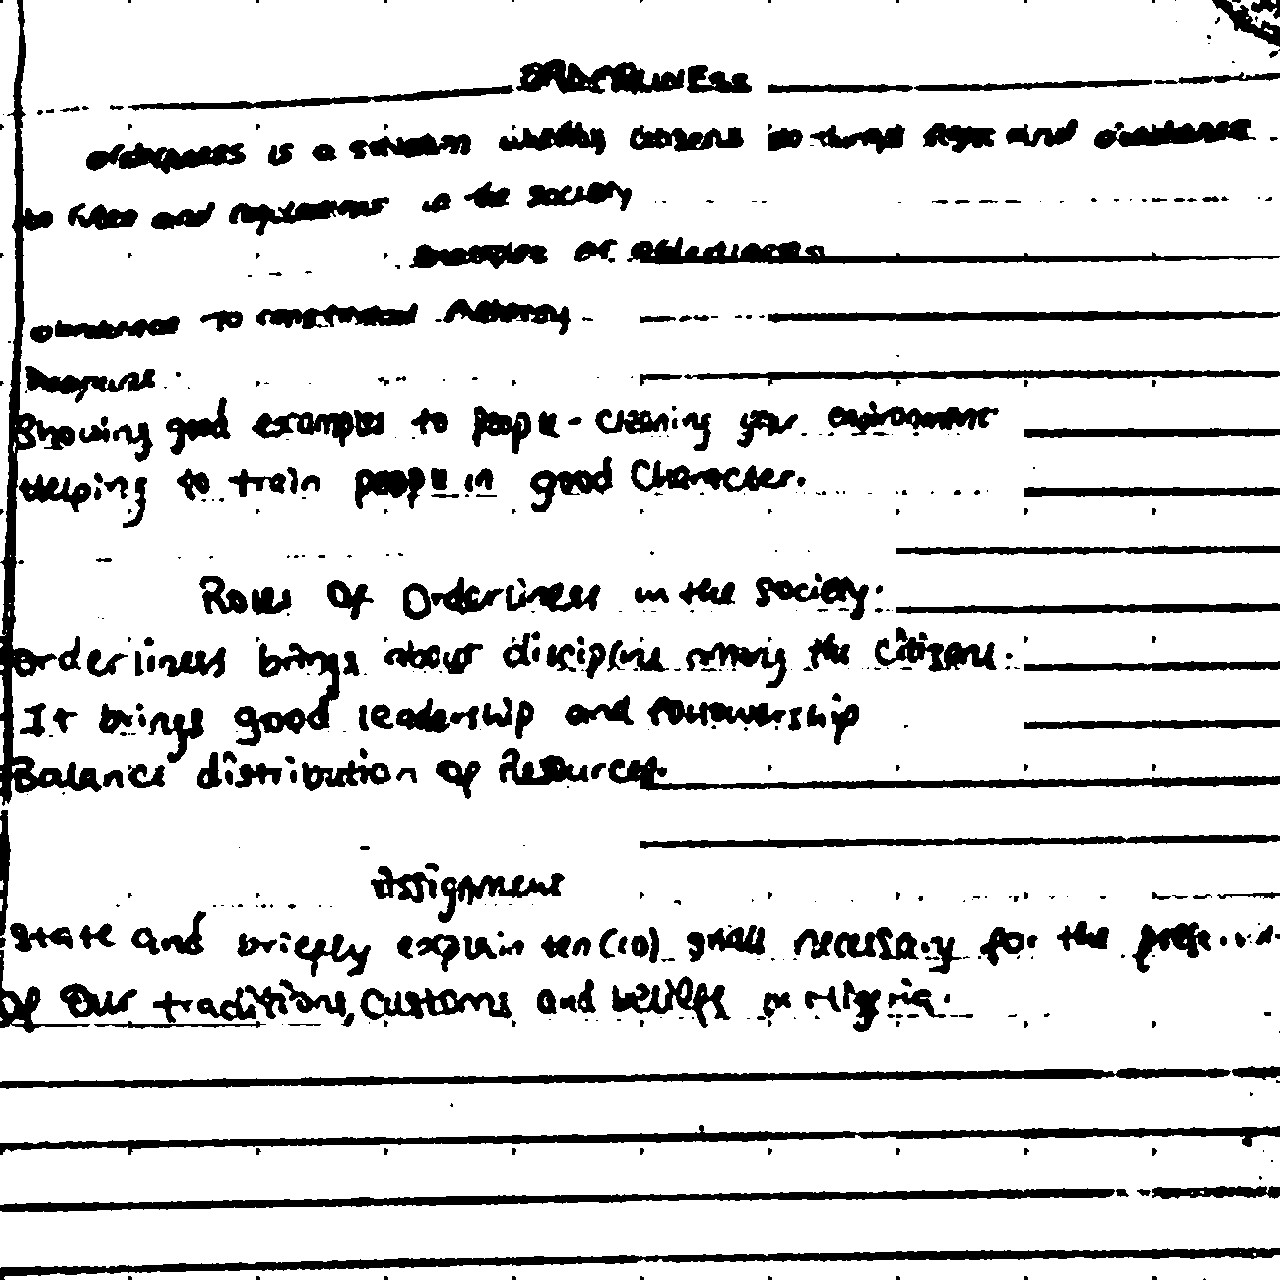 ORDERLINESS
Orderliness is a situation whereby citizens do things right and obedience
to rules and regulations in the society
Examples of orderliness
obedience to constituted Authority
Discipline
Showing good examples to people - cleaning your environment
Helping to train people in good Character.
Roles Of Orderliness in the society.
Orderliness brings about discipline among the citizens.
It brings good leadership and followership
Balance distribution Of Resources.
Assignment
State and briefly explain ten (10) necessary for the
Of Our traditions, Customs and beliefs in Nigeria.